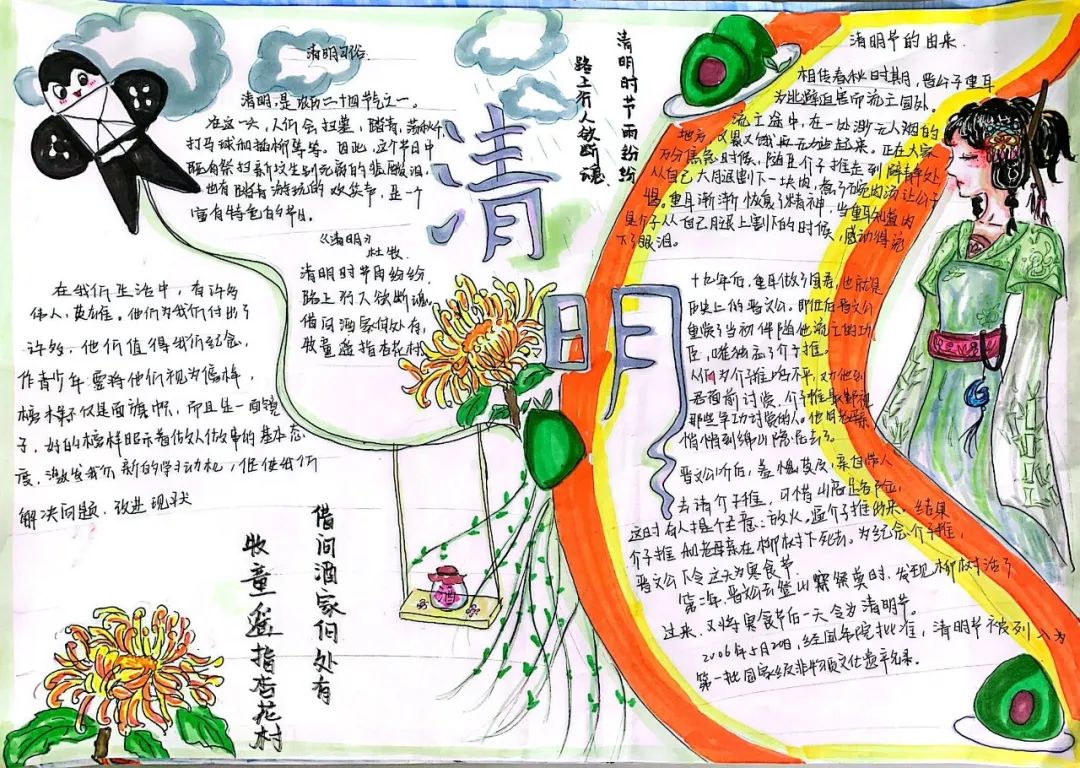 清明习俗
清明，是农历二十四节气之一。
在这一天，人们会扫墓，踏青，荡秋千，
打马球和插柳等等。因此，这个节日中
既有祭扫新坟生别死离的悲酸泪，
也有踏青游玩的欢笑声，是一个
富有特色的节日。
《清明》
杜牧
清明时节雨纷纷
路上行人欲断魂，
借问酒家何处有，
牧童遥指杏花村
在我们生活中，有许多
伟人，英雄。他们为我们付出了
许多，他们值得我们纪念，
作青少年要将他们视为榜样，
榜样不仅是面旗帜，而且是一面镜
子。好的榜样昭示着做人做事的基本态
度，激发我们新的学习动机，促使我们
解决问题、改进现状
借问酒家何处有
牧童遥指杏花村
清明时节雨纷纷
路上行人欲断魂
清明
酒
清明节的由来
相传春秋时期，晋公子重耳
为逃避迫害而流亡国外。
流亡途中，在一处渺无人烟的
地方，又累又饿，再无力站起来。正在大家
万分焦急时候，随臣介子推走到僻静处
从自己大腿割下一块肉，煮了碗肉汤让公子
喝。重耳渐渐恢复了精神，当重耳知道肉
是介子从自己腿上割下的时候，感动得流
下了眼泪。
十九年后，重耳做了国君，也就是
历史上的晋文公。即位后晋文公
重赏了当初伴随他流亡的功
臣，唯独忘了介子推。
人们为介子推鸣不平，劝他到
君面前讨赏，介子推最鄙视
那些争功讨赏的人。他同老母亲
悄悄到绵山隐居去了。
晋文公听后，羞愧莫及，亲自带人
去请介子推，可惜山路是否险，
这时有人提个主意：放火。逼介子推出来。结果
介子推和老母亲在柳树下死去。为纪念介子推，
晋文公下令这天为寒食节
第二年，晋文公去登山祭奠时，发现柳树活了
过来，又将寒食节后一天令为清明节。
2006年5月20日，经国务院批准，清明节被列入为
第一批国家级非物质文化遗产名录。